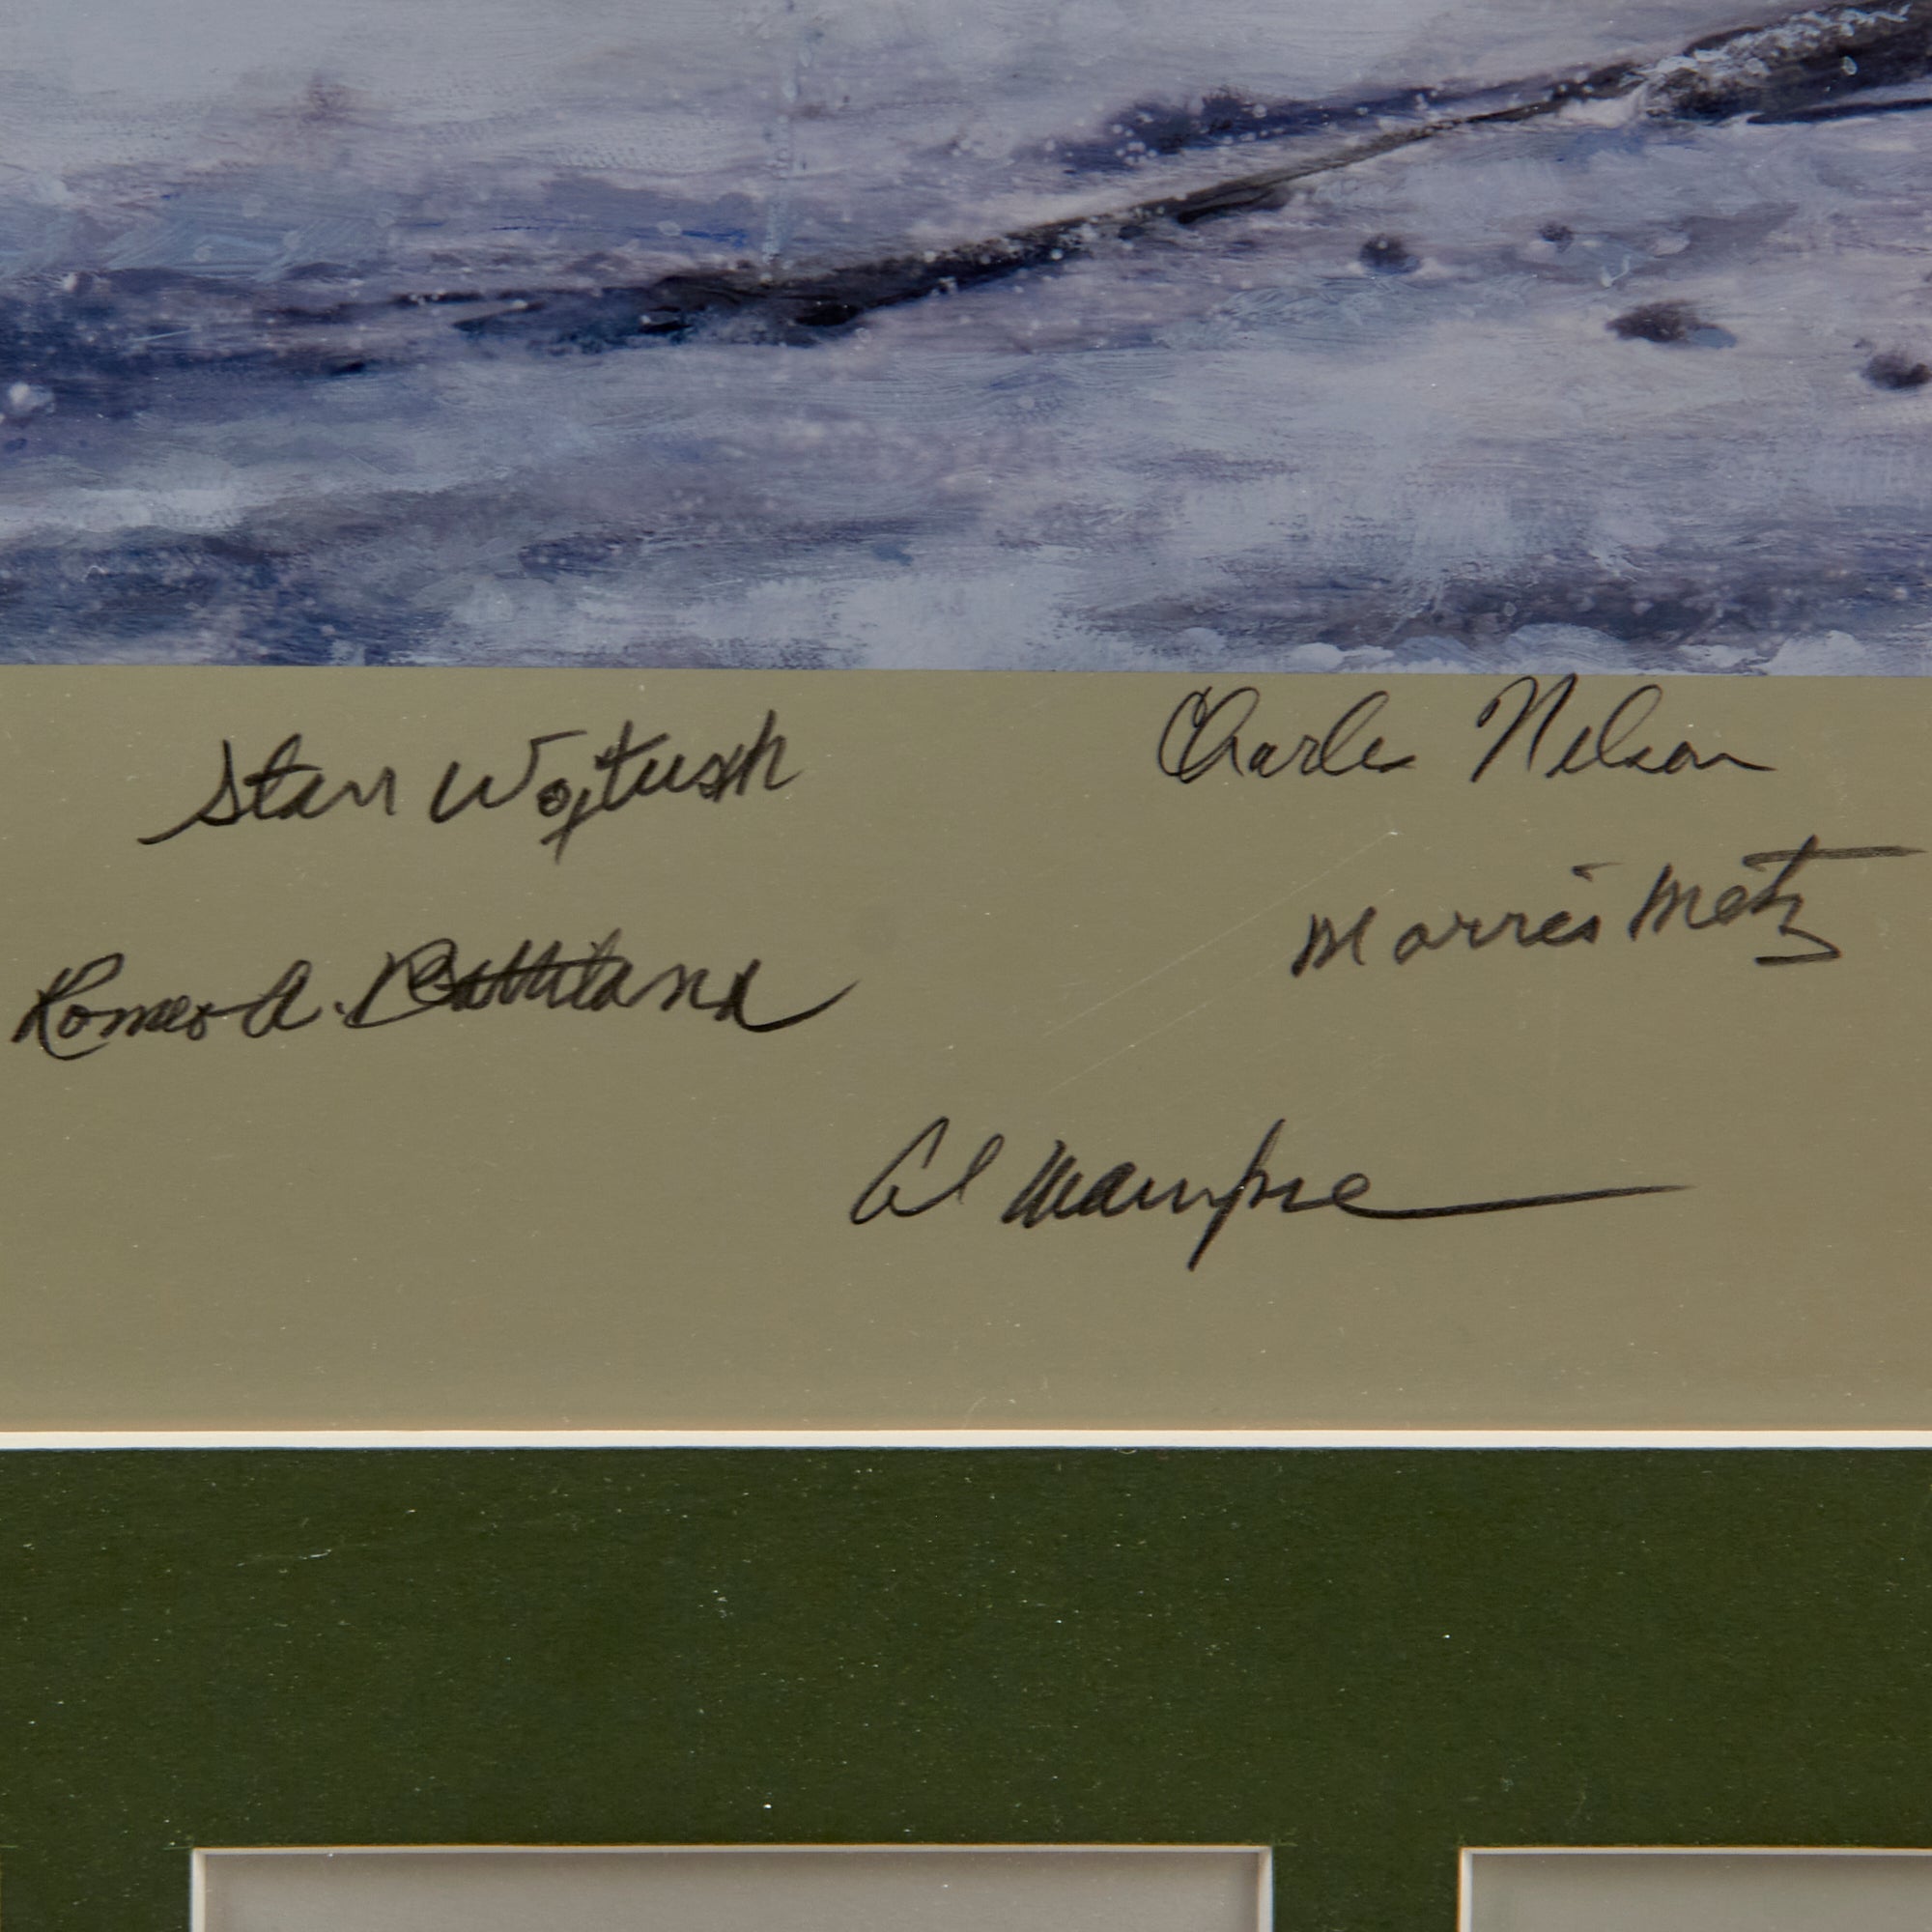 Stan Wojtusik
Charles Nelson
Morris Metz
Romeo A.
Al Mampre